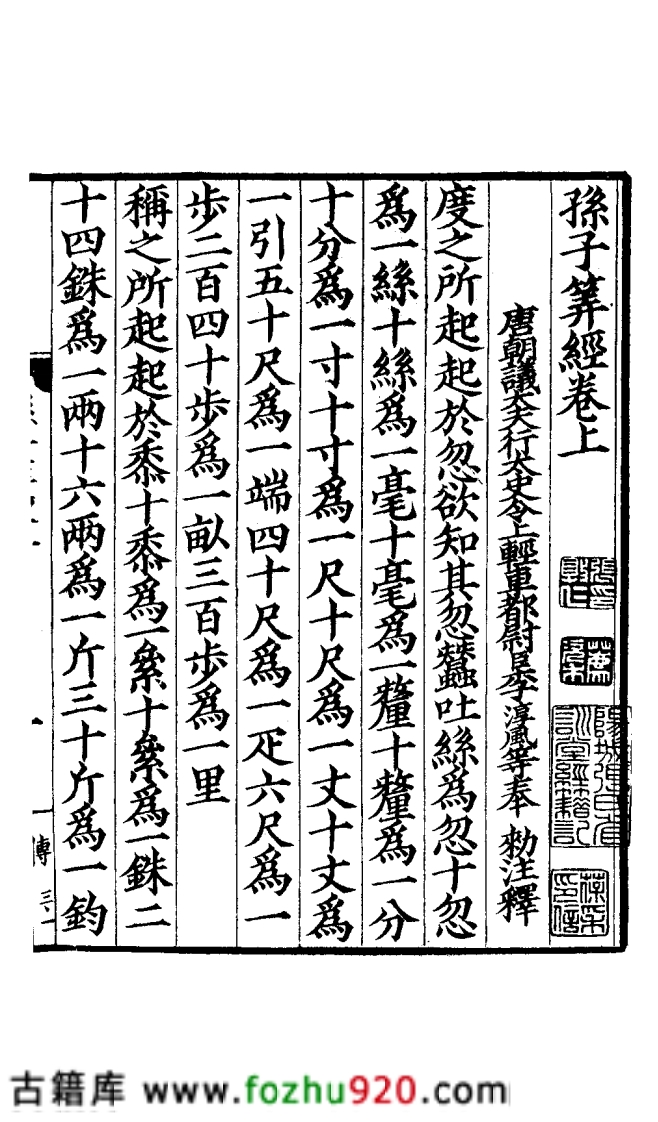 孫子筭經卷上
唐朝議大夫行太史令上輕車都尉臣李淳風等奉 勑注釋
度之所起起於忽欲知其忽蠶吐絲為忽十忽
為一絲十絲為一毫十毫為一釐十釐為一分
十分為一寸十寸為一尺十尺為一丈十丈為
一引五十尺為一端四十尺為一疋六尺為一
步二百四十步為一畝三百步為一里
稱之所起起於黍十黍為一絫十絫為一銖二
十四銖為一兩十六兩為一斤三十斤為一鈞
古籍库 www.fozhu920.com